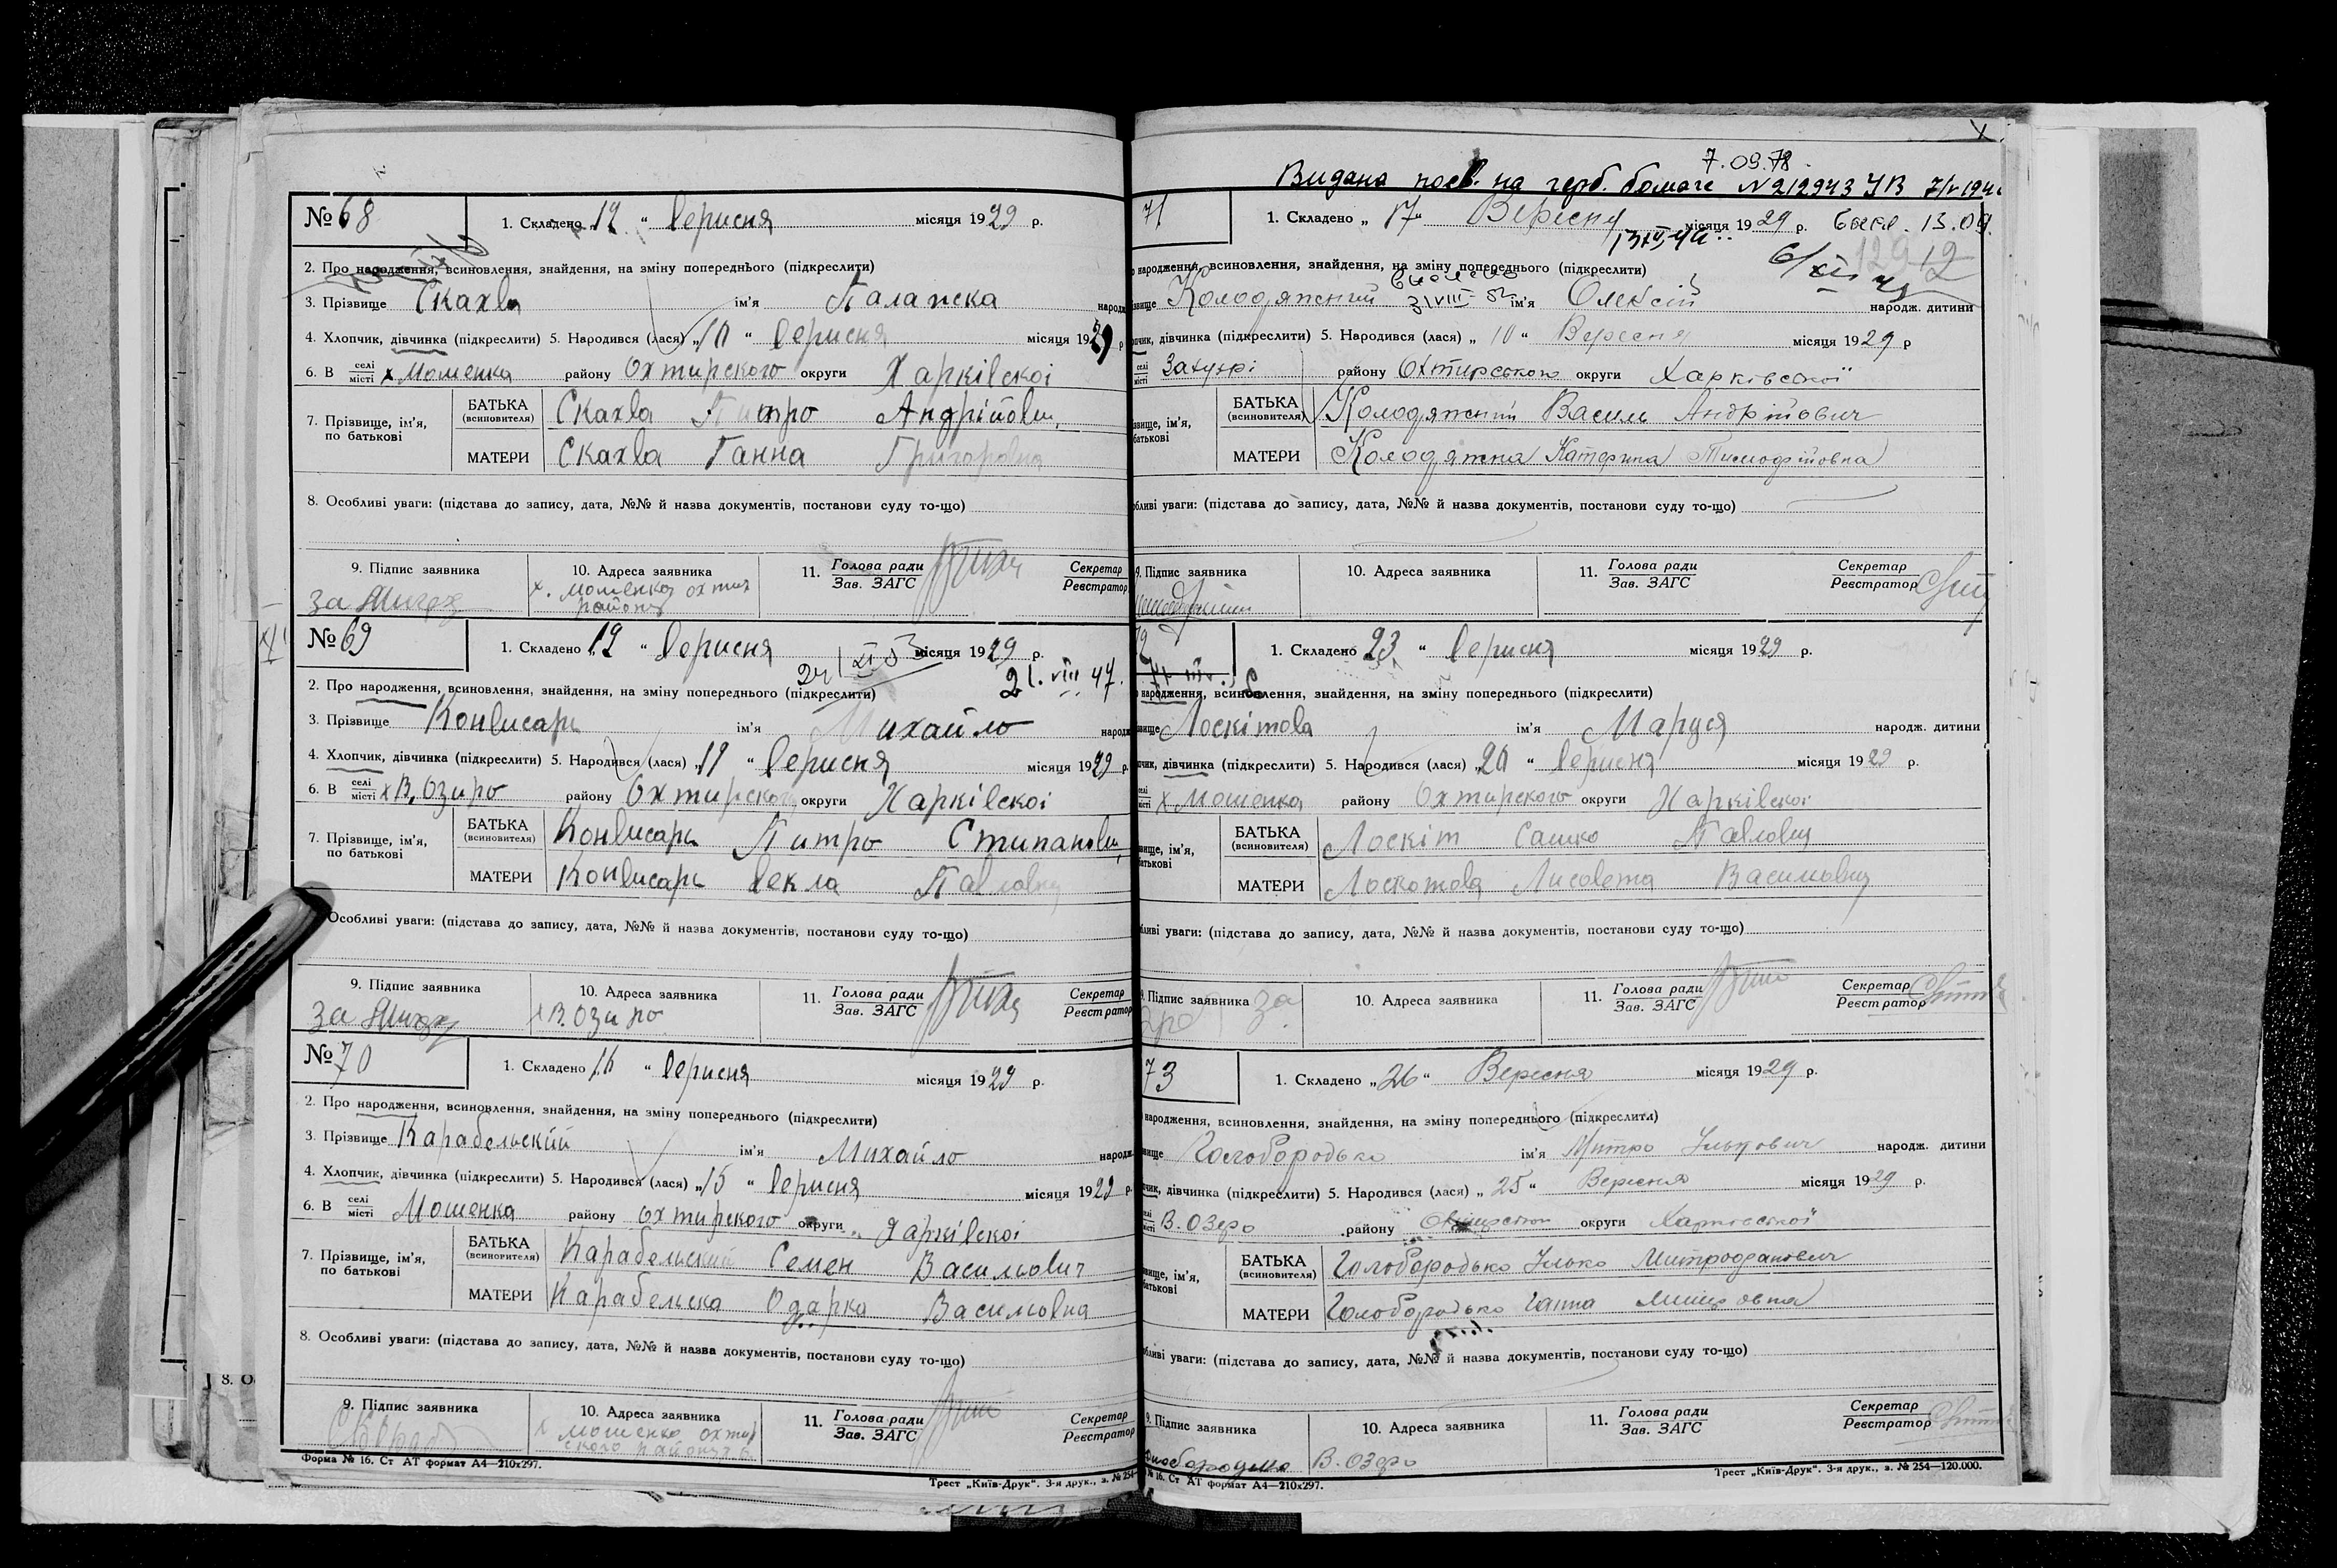 № 68
1. Складено „12 “ вересня місяця 1929 р.
2. Про народження, всиновлення, знайдення, на зміну попереднього (підкреслити)
3. Прізвище Скахва ім'я Палажка народж
4. Хлопчик, дівчинка (підкреслити) 5. Народився (лася) „10 “ верисня місяця 1929 р
6. В селі місті х Мошенка району Охтирского округи Харківскоі
7. Прізвище, ім'я, по батькові
БАТЬКА (всиновителя) Скахва Питро Андрійови
МАТЕРИ Скахва Ганна Григоровна
8. Особливі уваги: (підстава до запису, дата, №№ й назва документів, постанови суду то-що)
9. Підпис заявника за
10. Адреса заявника х. мошенка охтир району
11. Голова ради Зав. ЗАГС
Секретар Реєстратор
№ 69
1. Складено „12 “ верисня місяця 1929 р.
21. VIII 47.
2. Про народження, всиновлення, знайдення, на зміну попереднього (підкреслити)
3. Прізвище Конвисарь ім'я Михайло народж
4. Хлопчик, дівчинка (підкреслити) 5. Народився (лася) „11 “ верисня місяця 1929 р.
6. В селі місті х В. Озиро району Охтирского округи Харківскоі
7. Прізвище, ім'я, по батькові
БАТЬКА (всиновителя) Конвисарь Питро Стипанови
МАТЕРИ Конвисарь векла Павловна
Особливі уваги: (підстава до запису, дата, №№ й назва документів, постанови суду то-що)
9. Підпис заявника за
10. Адреса заявника х В. Озиро
11. Голова ради Зав. ЗАГС
Секретар Реєстратор
№ 70
1. Складено „16 “ верисня місяця 1929 р.
2. Про народження, всиновлення, знайдення, на зміну попереднього (підкреслити)
3. Прізвище Карабельский ім'я Михайло народж.
4. Хлопчик, дівчинка (підкреслити) 5. Народився (лася) „15 “ верисня місяця 1929 р.
6. В селі місті Мошенка району охтирского округи Харківскоі
7. Прізвище, ім'я, по батькові
БАТЬКА (всиновителя) Карабельский Семен Василович
МАТЕРИ Карабелска Одарка Василовна
8. Особливі уваги: (підстава до запису, дата, №№ й назва документів, постанови суду то-що)
9. Підпис заявника
10. Адреса заявника х мошенка охтир ского району
11. Голова ради Зав. ЗАГС
Секретар Реєстратор
Форма № 16. Ст АТ формат А4—210х297.
Трест „Київ-Друк“. 3-я друк., з. № 254
7.09.78.
Видана посв. на герб. бомаге N212943 УВ
71
1. Складено „ 17 “ Вересня місяця 1929 р.
народження, всиновлення, знайдення, на зміну попереднього (підкреслити)
звище Колодяжний 31 VIII- ім'я Олексій народж. дитини
пчик, дівчинка (підкреслити) 5. Народився (лася) „ 10 “ Вересня місяця 1929 р
селі місті Захуkрі району Охтирського округи Харківської
звище, ім'я, батькові
БАТЬКА (всиновителя) Колодяжний Василь Андрійович
МАТЕРИ Колодяжна Катерина Тимофійовна
обливі уваги: (підстава до запису, дата, №№ й назва документів, постанови суду то-що)
9. Підпис заявника
10. Адреса заявника
11. Голова ради Зав. ЗАГС
Секретар Реєстратор
72
1. Складено 23 “ верисня місяця 1929 р.
народження, всиновлення, знайдення, на зміну попереднього (підкреслити)
звище Лоскітова ім'я Маруся народж. дитини
пчик, дівчинка (підкреслити) 5. Народився (лася) „20 “ верисня місяця 1929 р.
селі місті х Мошенка району Охтирского округи Харківскоі
звище, ім'я, батькові
БАТЬКА (всиновителя) Лоскіт Сашко Павлович
МАТЕРИ Лоскотова Лисавета Василовна
бливі уваги: (підстава до запису, дата, №№ й назва документів, постанови суду то-що)
9. Підпис заявника за
10. Адреса заявника
11. Голова ради Зав. ЗАГС
Секретар Реєстратор
73
1. Складено „26“ Вересня місяця 1929 р.
народження, всиновлення, знайдення, на зміну попереднього (підкреслити)
звище Голобородько ім'я Митро Ількович народж. дитини
пчик, дівчинка (підкреслити) 5. Народився (лася) „ 25 “ Вересня місяця 1929 р.
селі місті В. Озеро району округи Харківської
звище, ім'я, батькові
БАТЬКА (всиновителя) Голобородько Ілько Митрофанович
МАТЕРИ Голобородько Ганна
бливі уваги: (підстава до запису, дата, №№ й назва документів, постанови суду то-що)
9. Підпис заявника
10. Адреса заявника В. Озеро
11. Голова ради Зав. ЗАГС
Секретар Реєстратор
№ 16. Ст АТ формат А4—210х297.
Трест „Київ-Друк“. 3-я друк., з. № 254—120.000.